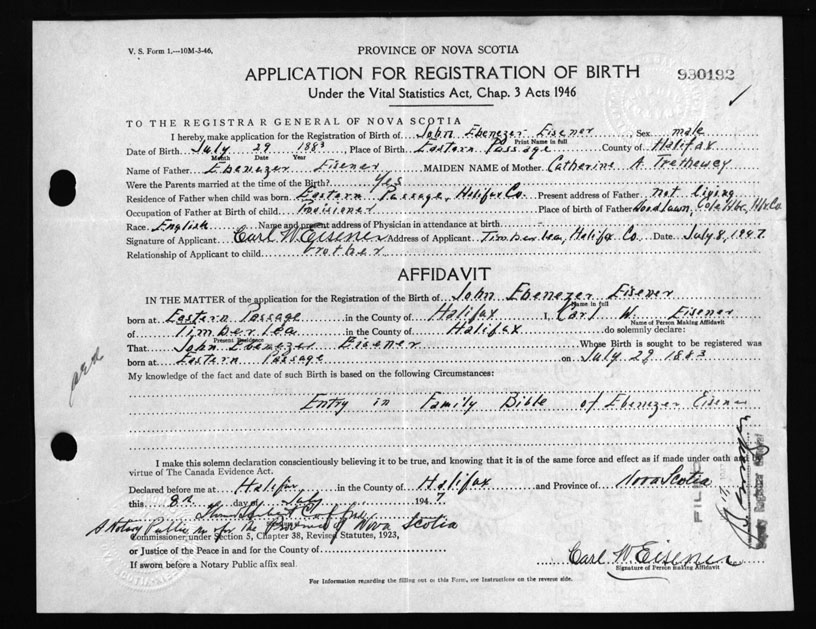 V. S. Form 1.—10M-3-46.
PROVINCE OF NOVA SCOTIA
APPLICATION FOR REGISTRATION OF BIRTH
930192
Under the Vital Statistics Act, Chap. 3 Acts 1946
TO THE REGISTRAR GENERAL OF NOVA SCOTIA
I hereby make application for the Registration of Birth of John Ebenezer Eisener, Sex male
Print Name in full
Date of Birth July 29 1883, Place of Birth Eastern Passage County of Halifax
Month Date Year
Name of Father Ebenezer Eisener MAIDEN NAME of Mother Catherine A Trethewey
Were the Parents married at the time of the Birth? Yes
Residence of Father when child was born Eastern Passage, Halifax Co. Present address of Father not living
Occupation of Father at Birth of child Provisioner Place of birth of Father Woodlawn, Cole Hbr, Hfx Co.
Race English Name and present address of Physician in attendance at birth
Signature of Applicant Carl W Eisener Address of Applicant Timberlea, Halifax Co. Date July 8, 1947
Relationship of Applicant to child brother
AFFIDAVIT
IN THE MATTER of the application for the Registration of the Birth of John Ebenezer Eisener
Name in full
born at Eastern Passage in the County of Halifax I, Carl W. Eisener
Name of Person Making Affidavit
of Timberlea in the County of Halifax do solemnly declare:
Present Residence
That John Ebenezer Eisener Whose Birth is sought to be registered was
born at Eastern Passage on July 29 1883
My knowledge of the fact and date of such Birth is based on the following Circumstances:
Entry in Family Bible of Ebenezer Eisener
I make this solemn declaration conscientiously believing it to be true, and knowing that it is of the same force and effect as if made under oath and by
virtue of The Canada Evidence Act.
Declared before me at Halifax in the County of Halifax and Province of Nova Scotia
this 8th day of July 1947
A Notary Public in & for the Province of Nova Scotia
Commissioner under Section 5, Chapter 38, Revised Statutes, 1923,
or Justice of the Peace in and for the County of
If sworn before a Notary Public affix seal.
Carl W Eisener
Signature of Person Making Affidavit
For Information regarding the filling out of this Form, see Instructions on the reverse side.
FILED
Deputy Registrar General